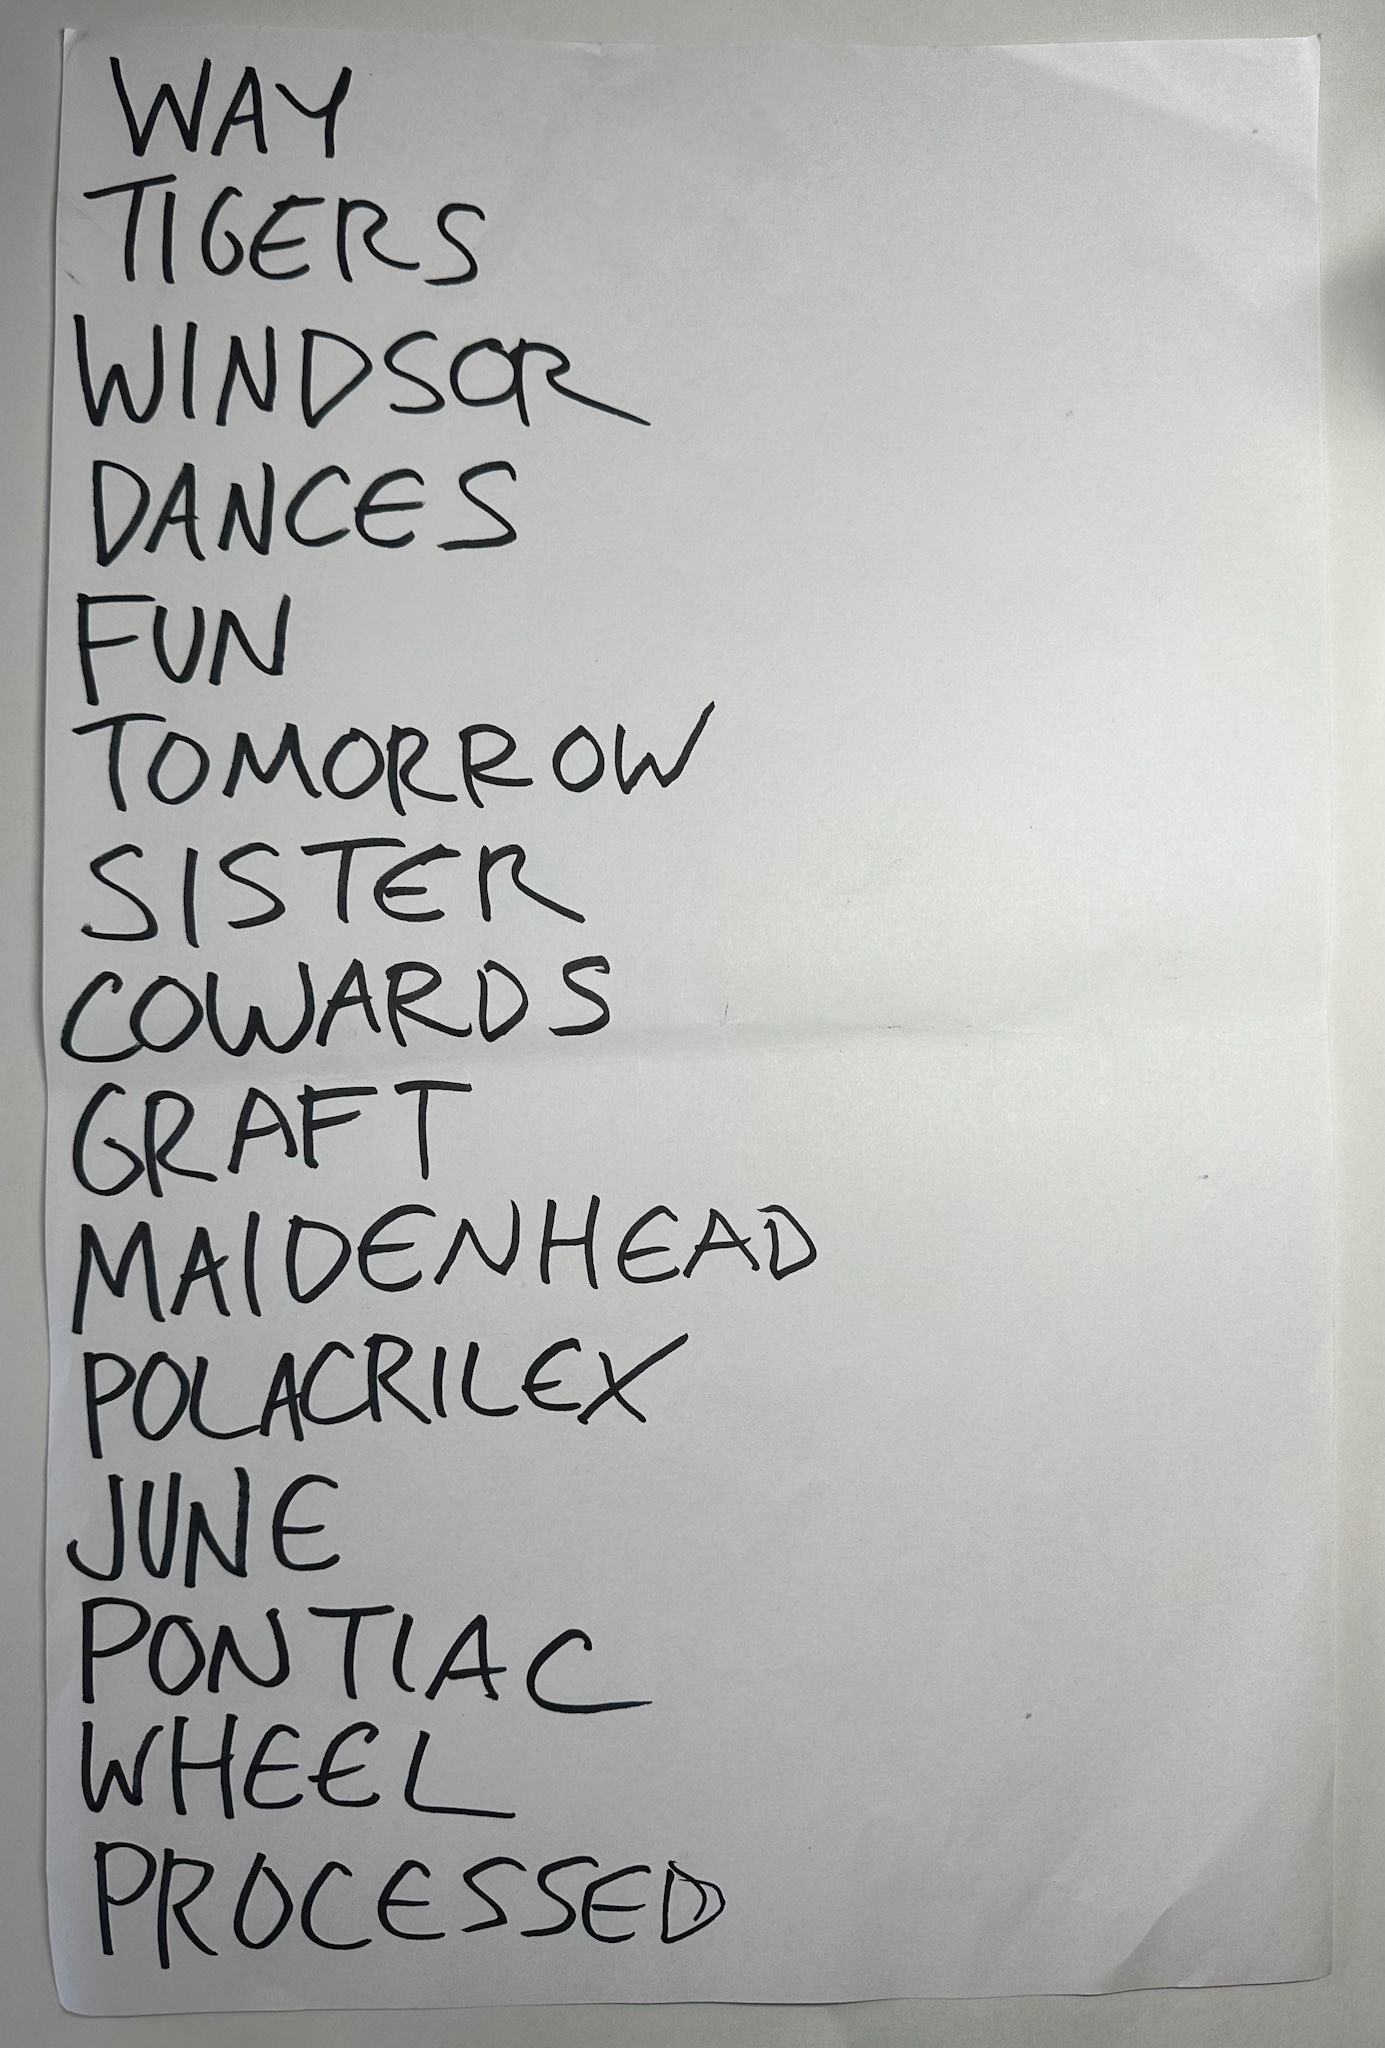 WAY
TIGERS
WINDSOR
DANCES
FUN
TOMORROW
SISTER
COWARDS
GRAFT
MAIDENHEAD
POLACRILEX
JUNE
PONTIAC
WHEEL
PROCESSED